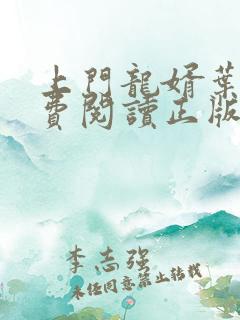 上門龍婿葉
費閱讀正版
李志强
未经同意禁止转载